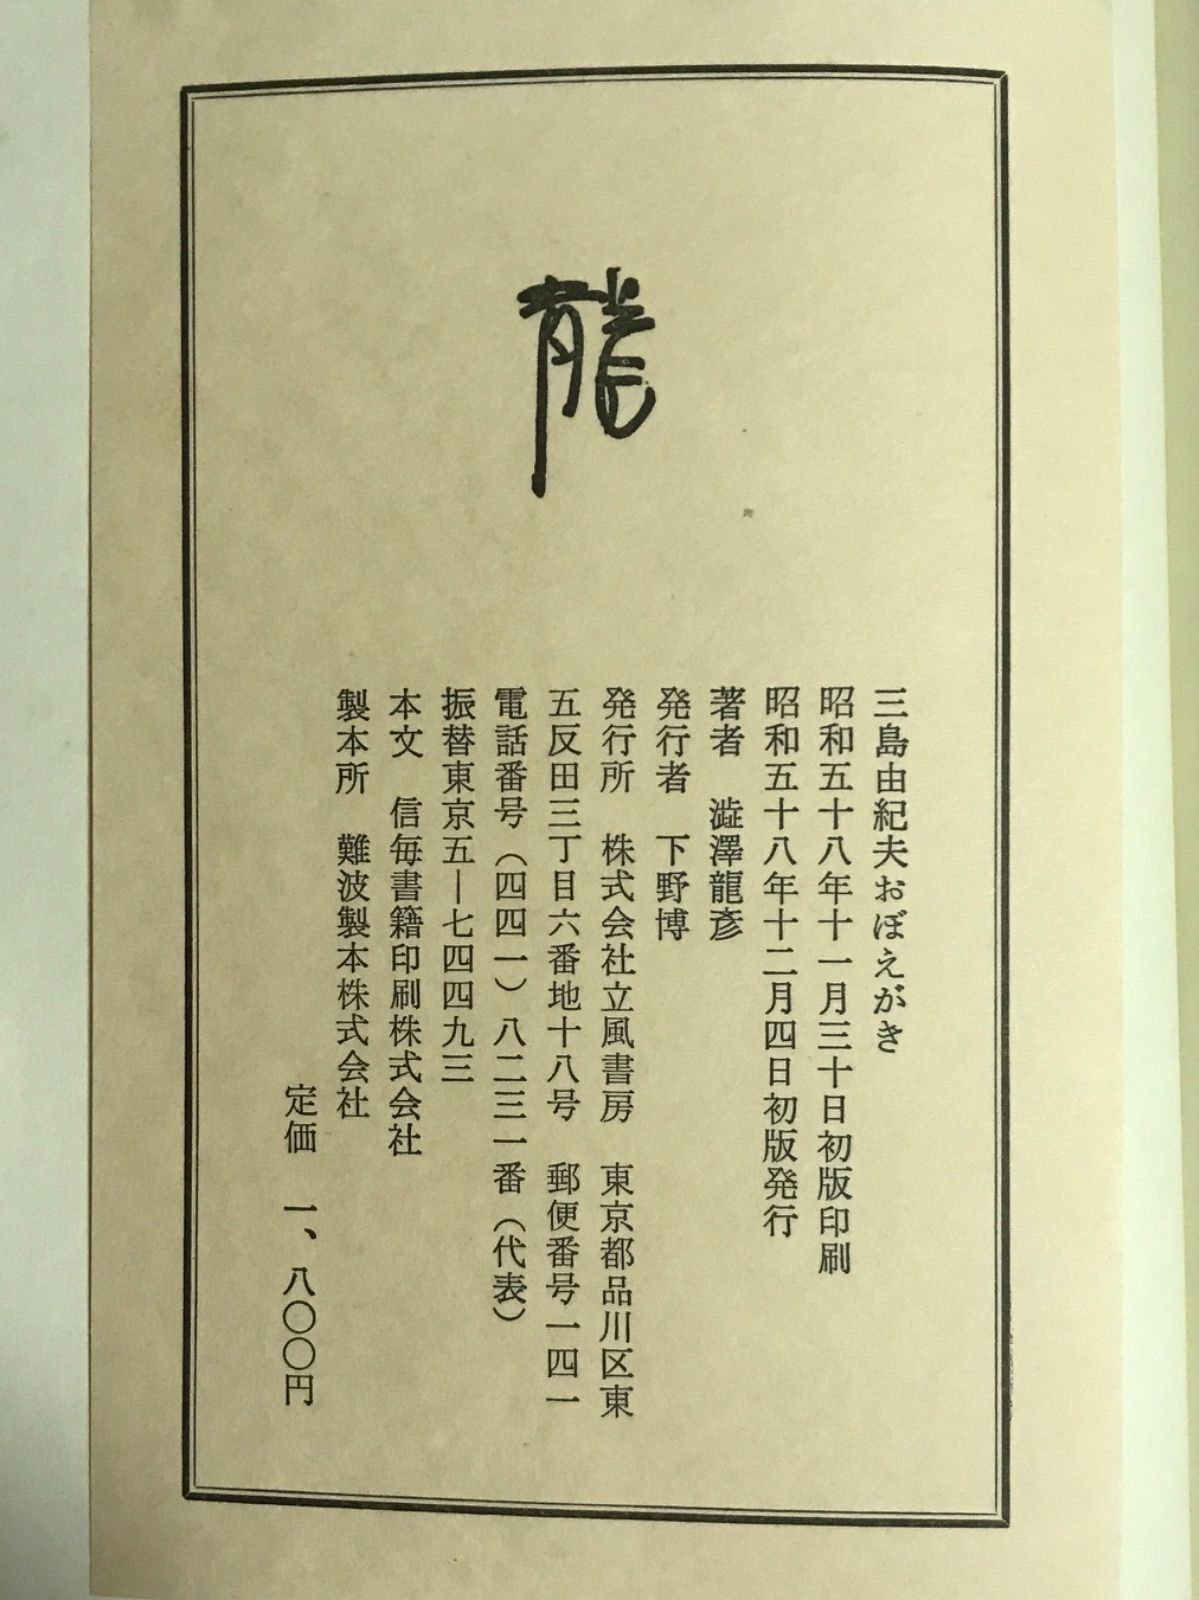 龍
三島由紀夫おぼえがき
昭和五十八年十一月三十日初版印刷
昭和五十八年十二月四日初版発行
著者　澁澤龍彥
発行者　下野博
発行所　株式会社立風書房　東京都品川区東
五反田三丁目六番地十八号　郵便番号一四一
電話番号（四四一）八二三一番（代表）
振替東京五―七四四九三
本文　信毎書籍印刷株式会社
製本所　難波製本株式会社
定価　一、八〇〇円